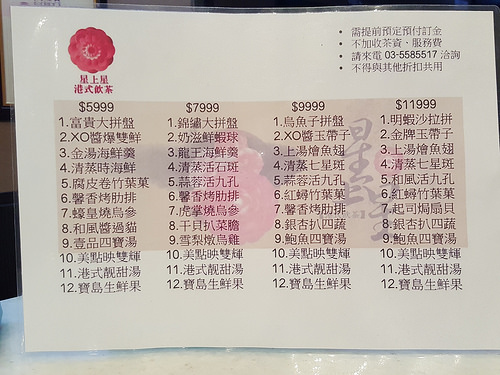 星上星
港式飲茶
• 需提前預定預付訂金
• 不加收茶資、服務費
• 請來電 03-5585517 洽詢
• 不得與其他折扣共用
$5999
1.富貴大拼盤
2.XO醬爆雙鮮
3.金湯海鮮羹
4.清蒸時海鮮
5.腐皮卷竹葉菓
6.馨香烤肋排
7.蠔皇燒烏參
8.和風醬過貓
9.壹品四寶湯
10.美點映雙輝
11.港式靓甜湯
12.寶島生鮮果
$7999
1.錦繡大拼盤
2.奶滋鮮蝦球
3.龍王海鮮羹
4.清蒸活石斑
5.蒜蓉活九孔
6.馨香烤肋排
7.虎掌燒烏參
8.干貝扒菜膽
9.雪梨燉烏雞
10.美點映雙輝
11.港式靓甜湯
12.寶島生鮮果
$9999
1.烏魚子拼盤
2.XO醬玉帶子
3.上湯燴魚翅
4.清蒸七星斑
5.蒜蓉活九孔
6.紅蟳竹葉菓
7.馨香烤肋排
8.銀杏扒四蔬
9.鮑魚四寶湯
10.美點映雙輝
11.港式靓甜湯
12.寶島生鮮果
$11999
1.明蝦沙拉拼
2.金牌玉帶子
3.上湯燴魚翅
4.清蒸七星斑
5.和風活九孔
6.紅蟳竹葉菓
7.起司焗扇貝
8.銀杏扒四蔬
9.鮑魚四寶湯
10.美點映雙輝
11.港式靓甜湯
12.寶島生鮮果